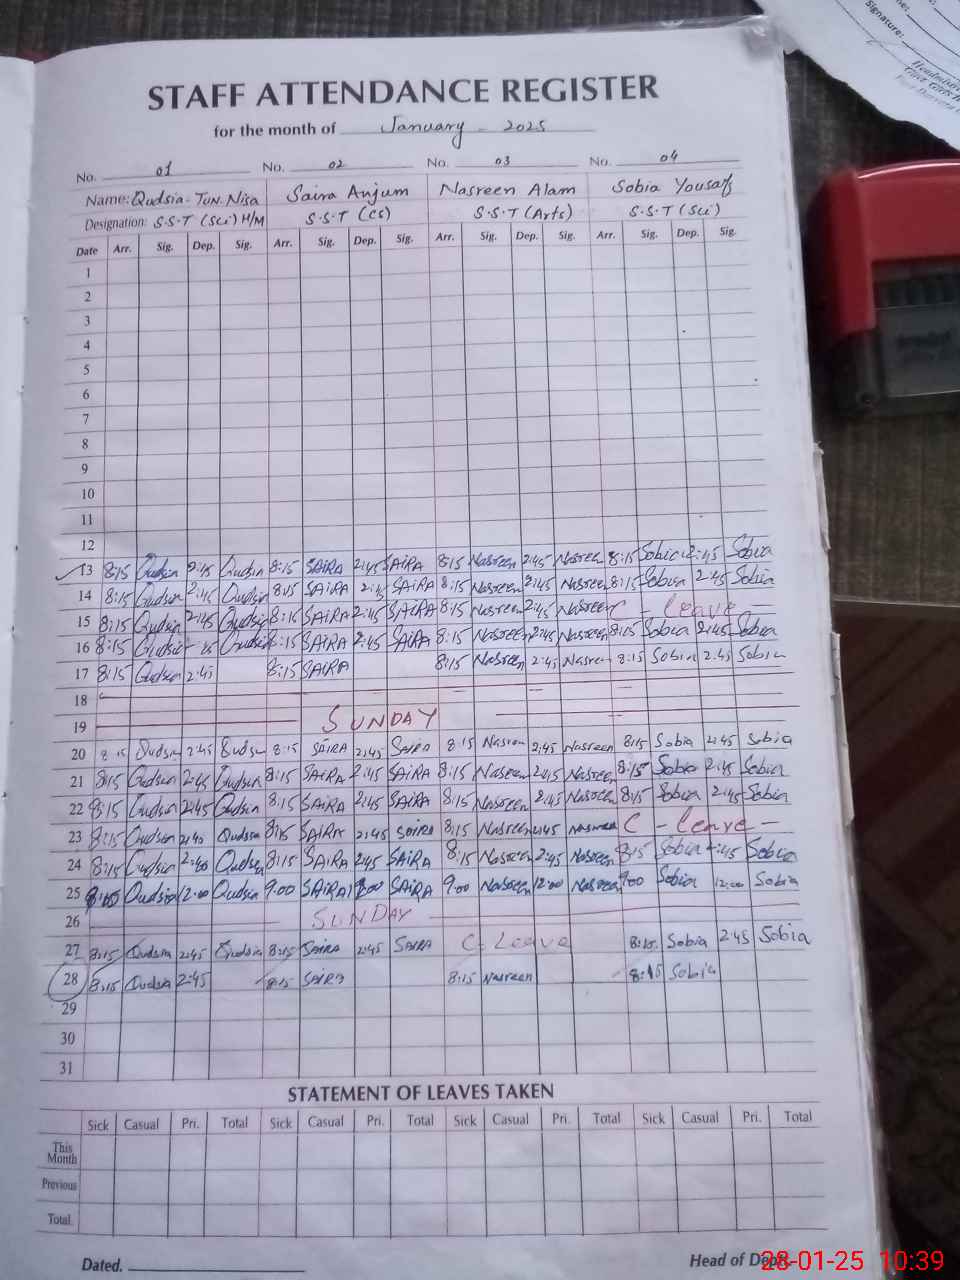 Signature:
STAFF ATTENDANCE REGISTER
for the month of January - 2025
No. 01 No. 02 No. 03 No. 04
Name: Qudsia-Tun-Nisa Saira Anjum Nasreen Alam Sobia Yousaf
Designation: S.S.T (Sci) H/M S.S.T (CS) S.S.T (Arts) S.S.T (Sci)
Date Arr. Sig. Dep. Sig. Arr. Sig. Dep. Sig. Arr. Sig. Dep. Sig. Arr. Sig. Dep. Sig.
1
2
3
4
5
6
7
8
9
10
11
12
13 8:15 Qudsia 2:45 Qudsia 8:15 SAIRA 2:45 SAIRA 8:15 Nasreen 2:45 Nasreen 8:15 Sobia 2:45 Sobia
14 8:15 Qudsia 2:45 Qudsia 8:15 SAIRA 2:45 SAIRA 8:15 Nasreen 2:45 Nasreen 8:15 Sobia 2:45 Sobia
15 8:15 Qudsia 2:45 Qudsia 8:15 SAIRA 2:45 SAIRA 8:15 Nasreen 2:45 Nasreen C - leave -
16 8:15 Qudsia 2:45 Qudsia 8:15 SAIRA 2:45 SAIRA 8:15 Nasreen 2:45 Nasreen 8:15 Sobia 2:45 Sobia
17 8:15 Qudsia 2:45 8:15 SAIRA 8:15 Nasreen 2:45 Nasreen 8:15 Sobia 2:45 Sobia
18
19 SUNDAY
20 8:15 Qudsia 2:45 Qudsia 8:15 SAIRA 2:45 SAIRA 8:15 Nasreen 2:45 Nasreen 8:15 Sobia 2:45 Sobia
21 8:15 Qudsia 2:45 Qudsia 8:15 SAIRA 2:45 SAIRA 8:15 Nasreen 2:45 Nasreen 8:15 Sobia 2:45 Sobia
22 8:15 Qudsia 2:45 Qudsia 8:15 SAIRA 2:45 SAIRA 8:15 Nasreen 2:45 Nasreen 8:15 Sobia 2:45 Sobia
23 8:15 Qudsia 2:40 Qudsia 8:15 SAIRA 2:45 SAIRA 8:15 Nasreen 2:45 Nasreen C - leave -
24 8:15 Qudsia 2:40 Qudsia 8:15 SAIRA 2:45 SAIRA 8:15 Nasreen 2:45 Nasreen 8:15 Sobia 2:45 Sobia
25 Qudsia 12:00 Qudsia 9:00 SAIRA 12:00 SAIRA 9:00 Nasreen 12:00 Nasreen 9:00 Sobia 12:00 Sobia
26 SUNDAY
27 8:15 Qudsia 2:45 Qudsia 8:15 SAIRA 2:45 SAIRA C - Leave 8:15 Sobia 2:45 Sobia
28 8:15 Qudsia 2:45 8:15 SAIRA 8:15 Nasreen 8:15 Sobia
29
30
31
STATEMENT OF LEAVES TAKEN
Sick Casual Pri. Total Sick Casual Pri. Total Sick Casual Pri. Total Sick Casual Pri. Total
This Month
Previous
Total.
Dated. Head of Deptt.
28-01-25 10:39